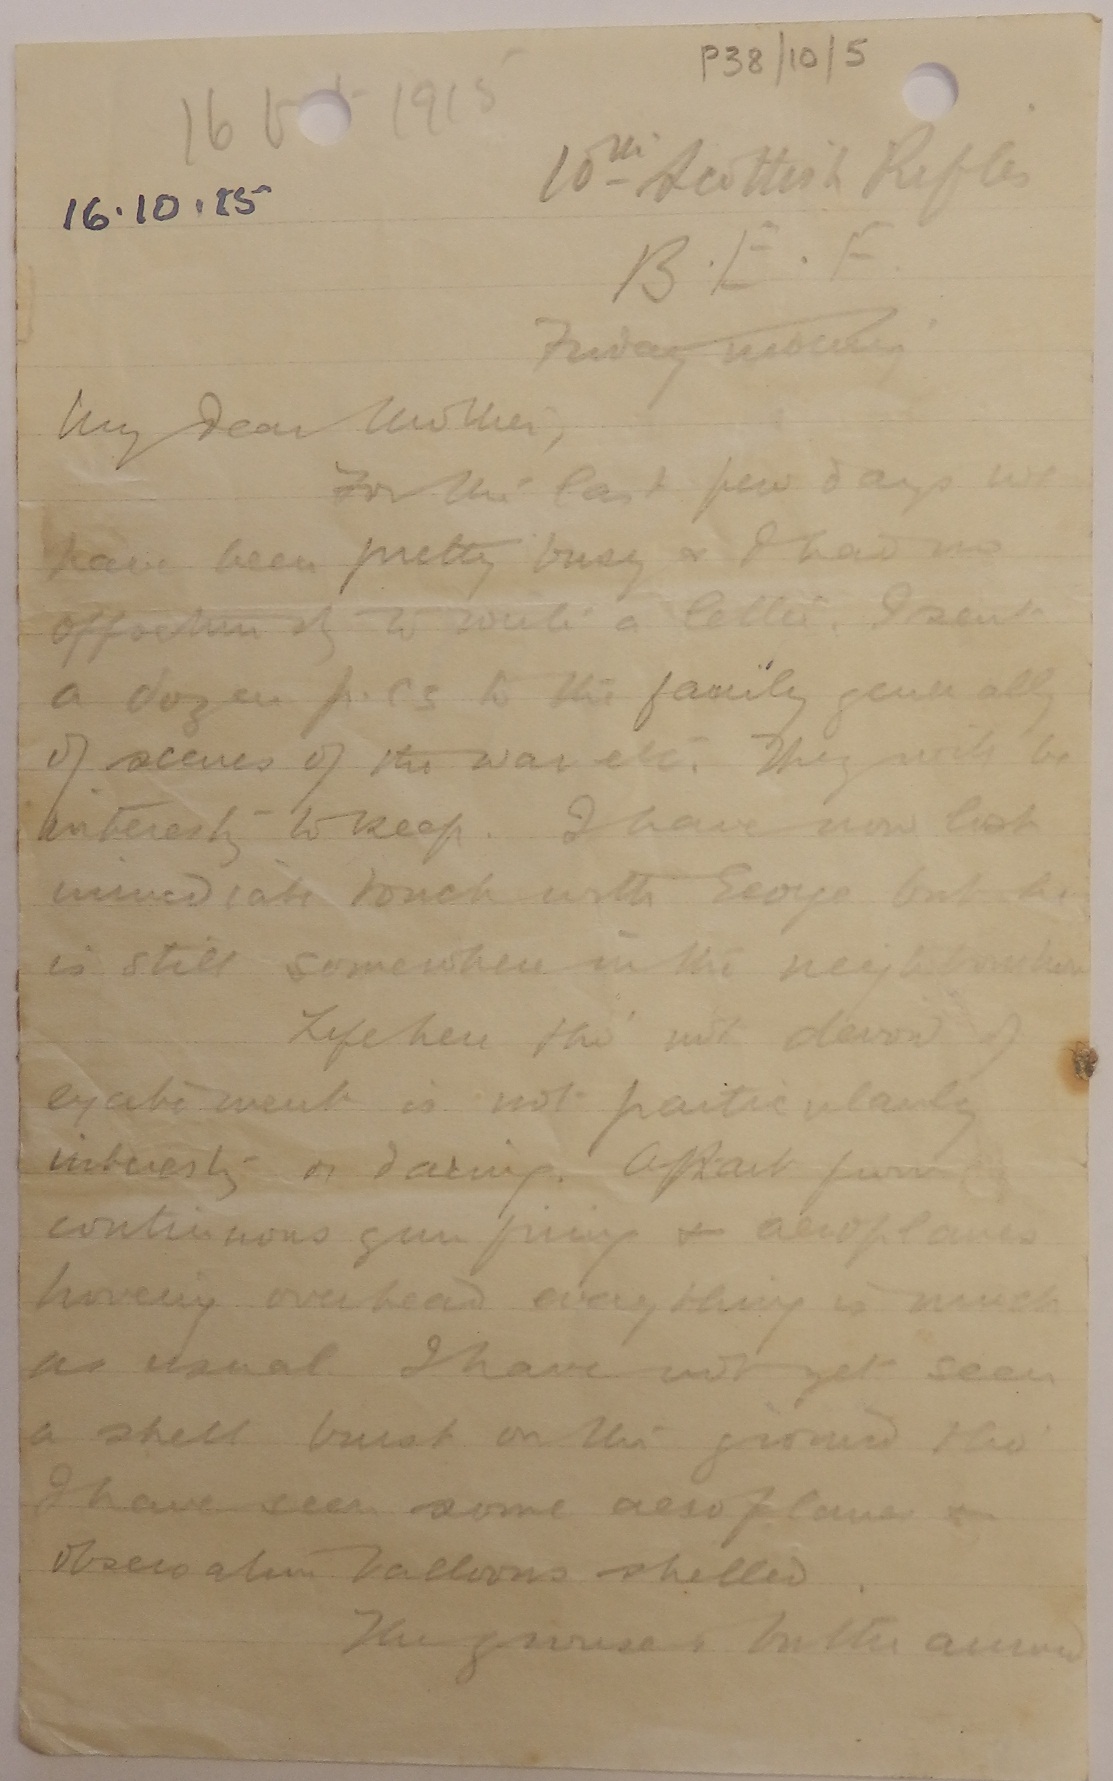 P38/10/5
16 Oct 1915
16.10.15
10th Scottish Rifles
B.E.F.
Friday morning
My dear Mother,
For the last few days we
have been pretty busy & I had no
opportunity to write a letter. I sent
a dozen p.cs to the family generally
of scenes of the war etc. They will be
interestg to keep. I have now lost
immediate touch with George but he
is still somewhere in the neighbourhood
Life here tho' not devoid of
excitement is not particularly
interestg or daring. Apart from
continuous gun firing & aeroplanes
hovering overhead everything is much
as usual. I have not yet seen
a shell burst on the ground tho'
I have seen some aeroplanes &
observation balloons shelled.
The grouse & butter arrived